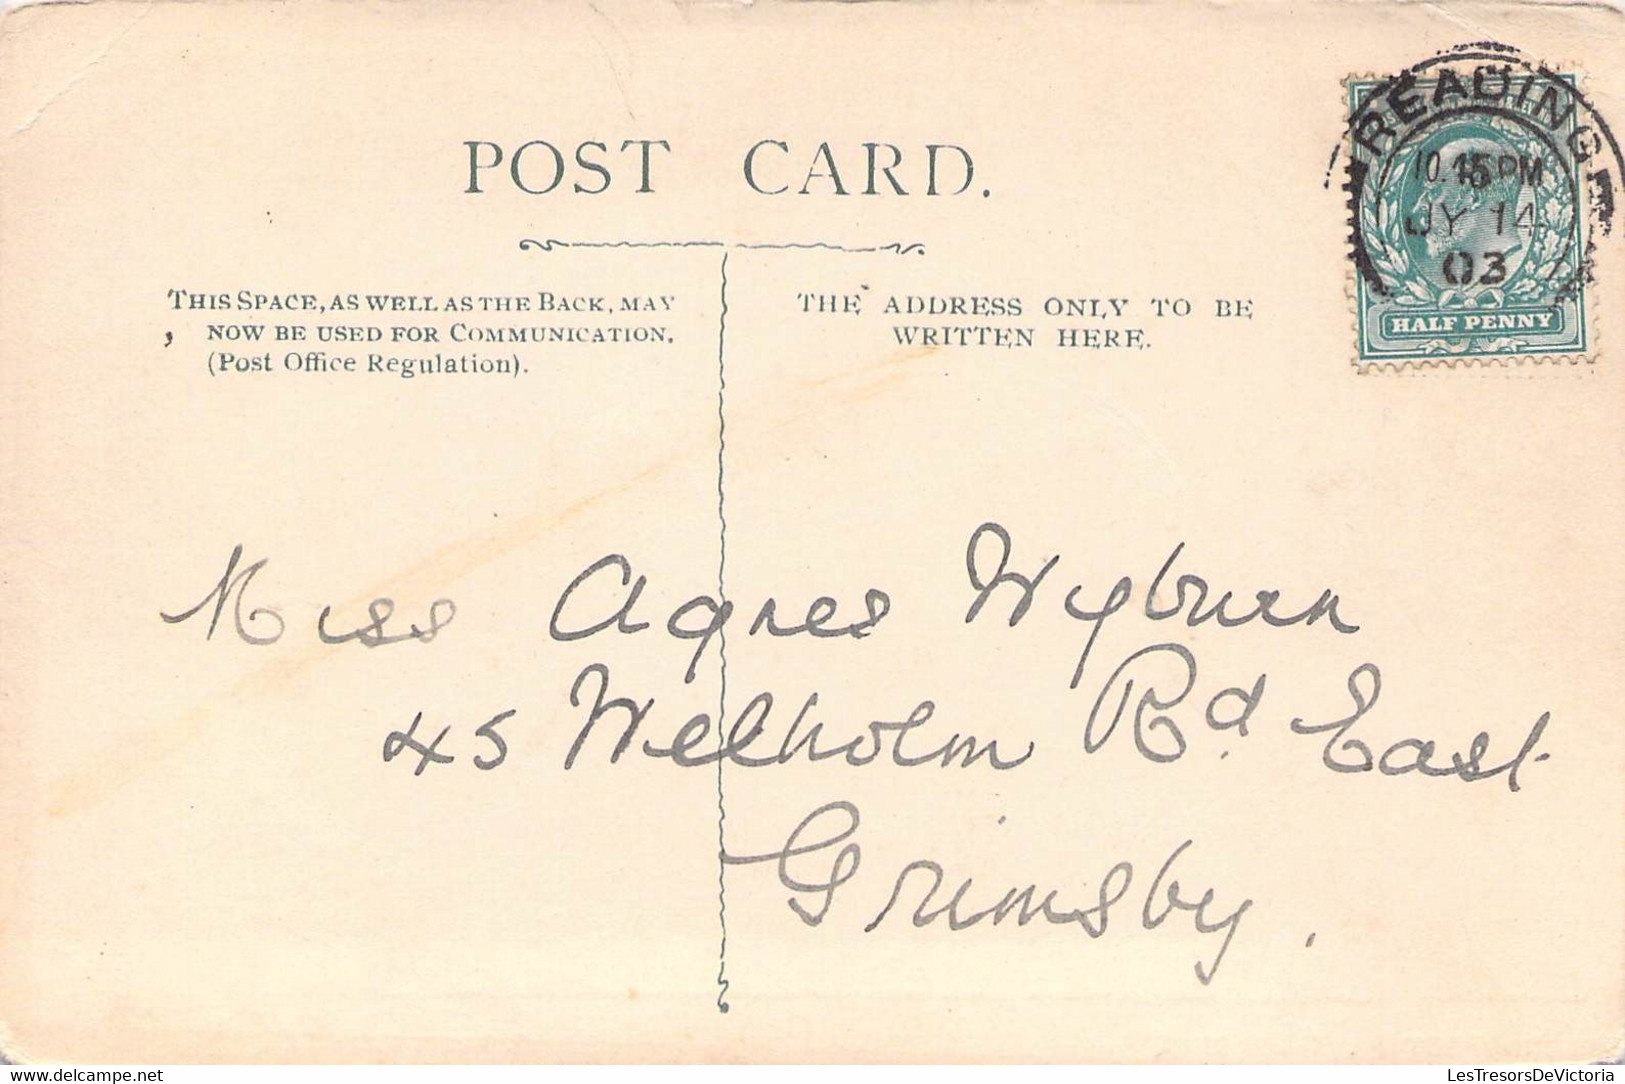 POST CARD.
THIS SPACE, AS WELL AS THE BACK, MAY
NOW BE USED FOR COMMUNICATION.
(Post Office Regulation).
THE ADDRESS ONLY TO BE
WRITTEN HERE.
READING
10.15 PM
JY 14
03
HALF PENNY
Miss Agnes Wyburn
45 Welholm Rd East
Grimsby.
delcampe.net
LesTresorsDeVictoria